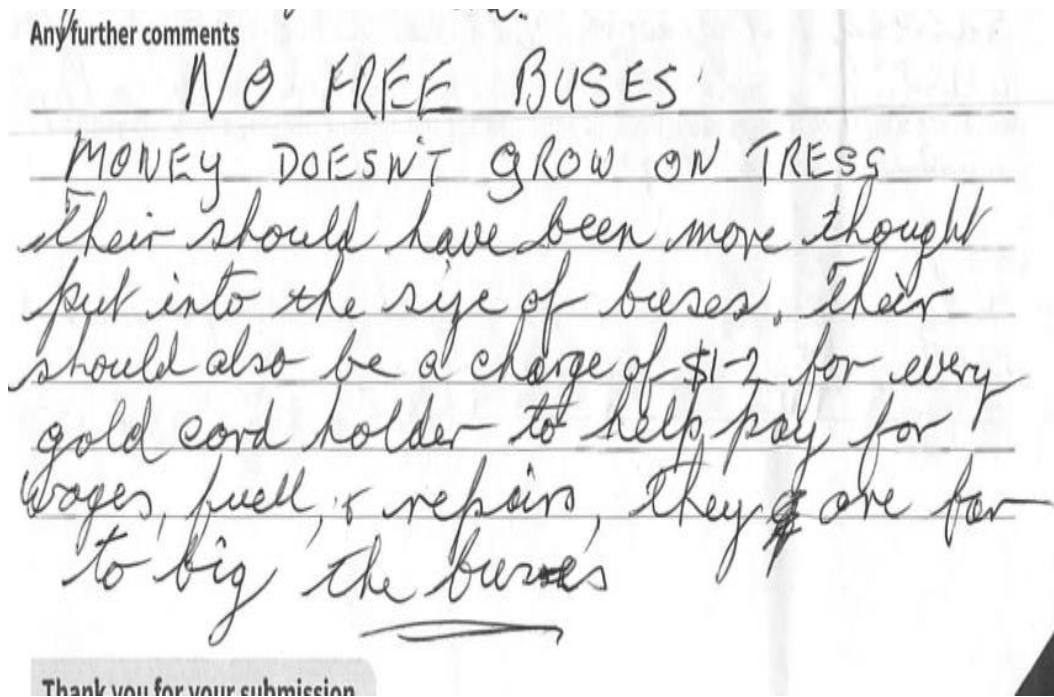 Any further comments
NO FREE BUSES
MONEY DOESN'T GROW ON TRESS
Their should have been more thought
put into the size of buses. Their
should also be a charge of $1-2 for every
gold card holder to help pay for
wages, fuell, & repairs, they are far
to big the buses
Thank you for your submission